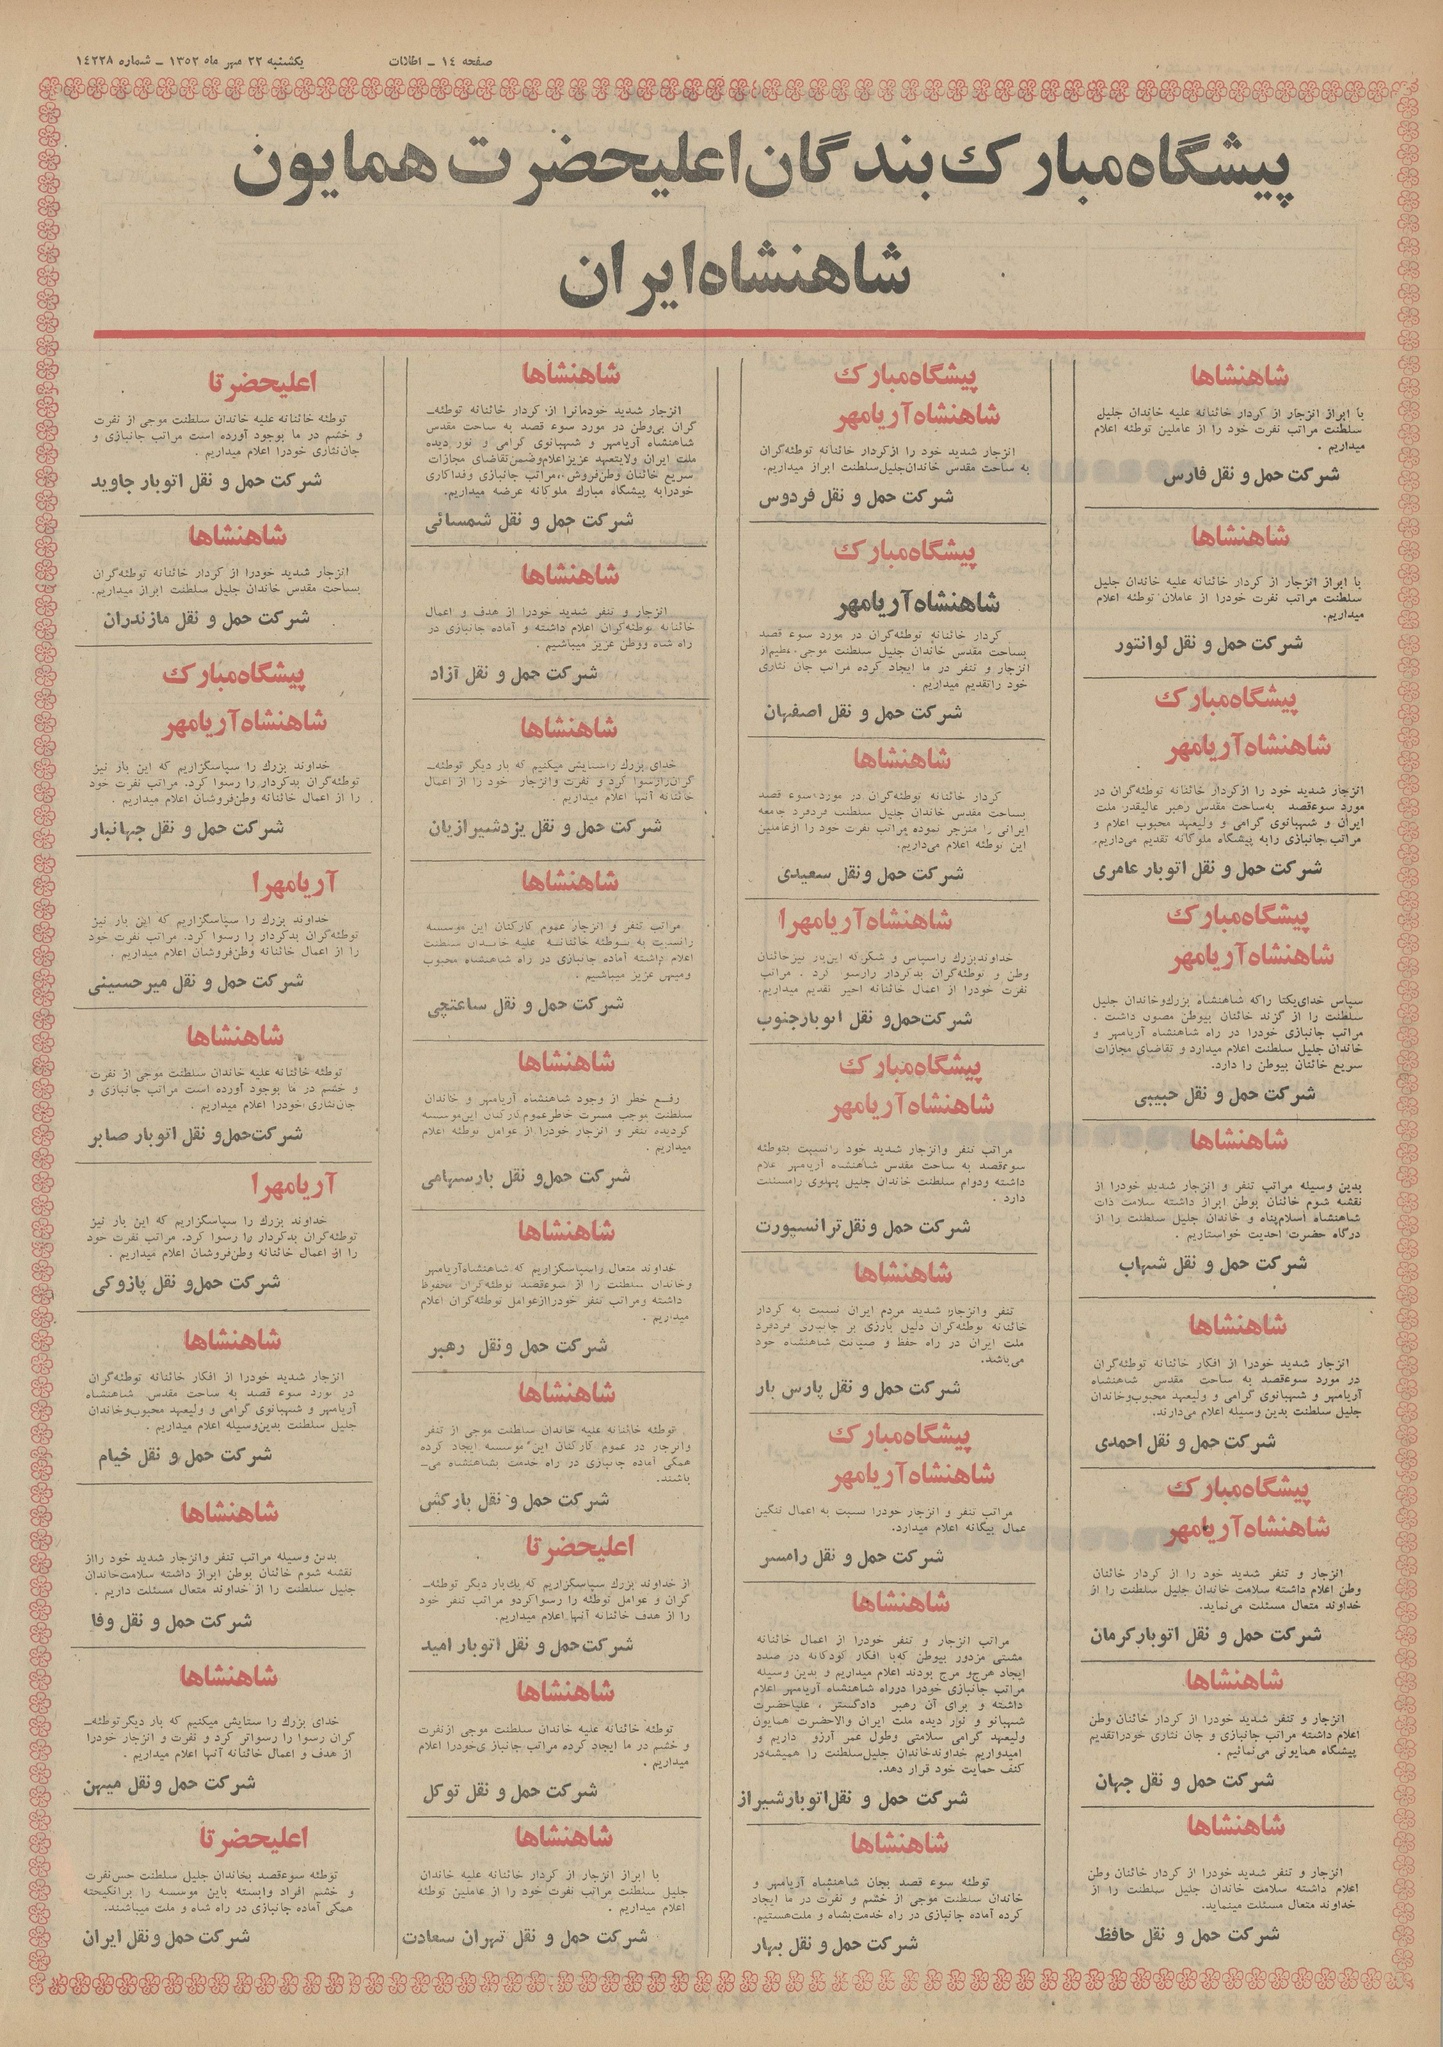 صفحه ١٤ - اطلاعات
یکشنبه ٢٢ مهر ماه ١٣٥٢ - شماره ١٤٢٢٨
پیشگاه مبارک بندگان اعلیحضرت همایون
شاهنشاه ایران
شاهنشاها
با ابراز انزجار از کردار خائنانه علیه خاندان جلیل
سلطنت مراتب نفرت خود را از عاملین توطئه اعلام
میداریم .
شرکت حمل و نقل فارس
شاهنشاها
با ابراز انزجار از کردار خائنانه علیه خاندان جلیل
سلطنت مراتب نفرت خودرا از عاملان توطئه اعلام
میداریم.
شرکت حمل و نقل لوانتور
پیشگاه مبارک
شاهنشاه آریامهر
انزجار شدید خود را از کردار خائنانه توطئه‌گران در
مورد سوءقصد به‌ساحت مقدس رهبر عالیقدر ملت
ایران و شهبانوی گرامی و ولیعهد محبوب اعلام و
مراتب جانبازی رابه پیشگاه ملوکانه تقدیم می‌داریم.
شرکت حمل و نقل اتوبار عامری
پیشگاه مبارک
شاهنشاه آریامهر
سپاس خدای‌یکتا راکه شاهنشاه بزرگ‌وخاندان جلیل
سلطنت را از گزند خائنان بیوطن مصون داشت .
مراتب جانبازی خودرا در راه شاهنشاه آریامهر و
خاندان جلیل سلطنت اعلام میدارد و تقاضای مجازات
سریع خائنان بیوطن را دارد.
شرکت حمل و نقل حبیبی
شاهنشاها
بدین وسیله مراتب تنفر و انزجار شدید خودرا از
نقشه شوم خائنان بوطن ابراز داشته سلامت ذات
شاهنشاه اسلام‌پناه و خاندان جلیل سلطنت را از
درگاه حضرت احدیت خواستاریم .
شرکت حمل و نقل شهاب
شاهنشاها
انزجار شدید خودرا از افکار خائنانه توطئه‌گران
در مورد سوءقصد به ساحت مقدس شاهنشاه
آریامهر و شهبانوی گرامی و ولیعهد محبوب‌وخاندان
جلیل سلطنت بدین وسیله اعلام می‌دارند.
شرکت حمل و نقل احمدی
پیشگاه مبارک
شاهنشاه آریامهر
انزجار و تنفر شدید خود را از کردار خائنان
وطن اعلام داشته سلامت خاندان جلیل سلطنت را از
خداوند متعال مسئلت می‌نماید.
شرکت حمل و نقل اتوبارکرمان
شاهنشاها
انزجار و تنفر شدید خودرا از کردار خائنان وطن
اعلام داشته مراتب جانبازی و جان نثاری خودراتقدیم
پیشگاه همایونی می‌نمائیم .
شرکت حمل و نقل جهان
شاهنشاها
انزجار و تنفر شدید خودرا از کردار خائنان وطن
اعلام داشته سلامت خاندان جلیل سلطنت را از
خداوند متعال مسئلت مینماید.
شرکت حمل و نقل حافظ
پیشگاه مبارک
شاهنشاه آریامهر
انزجار شدید خود را ازکردار خائنانه توطئه‌گران
به ساحت مقدس خاندان‌جلیل‌سلطنت ابراز میداریم.
شرکت حمل و نقل فردوس
پیشگاه مبارک
شاهنشاه آریامهر
کردار خائنانه توطئه‌گران در مورد سوء قصد
بساحت مقدس خاندان جلیل سلطنت موجی عظیم‌از
انزجار و تنفر در ما ایجاد کرده مراتب جان نثاری
خود راتقدیم میداریم .
شرکت حمل و نقل اصفهان
شاهنشاها
کردار خائنانه توطئه‌گران در مورد سوء قصد
بساحت مقدس خاندان جلیل سلطنت فردفرد جامعه
ایرانی را منزجر نموده مراتب نفرت خود را ازعاملین
این توطئه اعلام می‌داریم.
شرکت حمل ونقل سعیدی
شاهنشاه آریامهرا
خداوندبزرگ راسپاس و شکرکه این‌بار نیزخائنان
وطن و توطئه‌گران بدکردار رارسوا کرد . مراتب
نفرت خودرا از اعمال خائنانه اخیر تقدیم میداریم.
شرکت‌حمل‌و نقل اتوبارجنوب
پیشگاه مبارک
شاهنشاه آریامهر
مراتب تنفر وانزجار شدید خود رانسبت بتوطئه
سوءقصد به ساحت مقدس شاهنشاه آریامهر اعلام
داشته ودوام سلطنت خاندان جلیل پهلوی رامسئلت
دارد .
شرکت حمل ونقل ترانسپورت
شاهنشاها
تنفر وانزجار شدید مردم ایران نسبت به کردار
خائنانه توطئه‌گران دلیل بارزی بر جانبازی فردفرد
ملت ایران در راه حفظ و صیانت شاهنشاه خود
می‌باشد.
شرکت حمل و نقل پارس بار
پیشگاه مبارک
شاهنشاه آریامهر
مراتب تنفر و انزجار خودرا نسبت به اعمال ننگین
عمال بیگانه اعلام میدارد.
شرکت حمل و نقل رامسر
شاهنشاها
مراتب انزجار و تنفر خودرا از اعمال خائنانه
مشتی مزدور بیوطن که‌با افکار کودکانه در صدد
ایجاد هرج‌و مرج بودند اعلام میداریم و بدین وسیله
مراتب جانبازی خودرا درراه شاهنشاه آریامهر اعلام
داشته و برای آن رهبر دادگستر ، علیاحضرت
شهبانو و نور دیده ملت ایران والاحضرت همایون
ولیعهد گرامی سلامتی وطول عمر آرزو داریم و
امیدواریم خداوندخاندان جلیل‌سلطنت را همیشه‌در
کنف حمایت خود قرار دهد.
شرکت حمل و نقل‌اتوبارشیراز
شاهنشاها
توطئه سوء قصد بجان شاهنشاه آریامهر و
خاندان سلطنت موجی از خشم و نفرت در ما ایجاد
کرده آماده جانبازی در راه خدمت‌بشاه و ملت‌هستیم.
شرکت حمل و نقل بهار
شاهنشاها
انزجار شدید خودمانرا از کردار خائنانه توطئه‌ـ
گران بی‌وطن در مورد سوء قصد به ساحت مقدس
شاهنشاه آریامهر و شهبانوی گرامی و نور دیده
ملت ایران ولایتعهد عزیزاعلام‌وضمن‌تقاضای مجازات
سریع خائنان وطن‌فروش،مراتب جانبازی وفداکاری
خودرابه پیشگاه مبارک ملوکانه عرضه میداریم.
شرکت حمل و نقل شمسائی
شاهنشاها
انزجار و تنفر شدید خودرا از هدف و اعمال
خائنانه توطئه‌گران اعلام داشته و آماده جانبازی در
راه شاه ووطن عزیز میباشیم .
شرکت حمل و نقل آزاد
شاهنشاها
خدای بزرگ راستایش میکنیم که بار دیگر توطئه‌ـ
گران‌رارسوا کرد و نفرت وانزجار خود را از اعمال
خائنانه آنها اعلام میداریم .
شرکت حمل و نقل یزدشیرازیان
شاهنشاها
مراتب تنفر و انزجار عموم کارکنان این موسسه
رانسبت به توطئه خائنانه علیه خاندان سلطنت
اعلام داشته آماده جانبازی در راه شاهنشاه محبوب
ومیهن عزیز میباشیم .
شرکت حمل و نقل ساعتچی
شاهنشاها
رفع خطر از وجود شاهنشاه آریامهر و خاندان
سلطنت موجب مسرت خاطرعموم کارکنان این‌موسسه
گردیده تنفر و انزجار خودرا از عوامل توطئه اعلام
میداریم .
شرکت حمل‌و نقل بارسهامی
شاهنشاها
خداوند متعال راسپاسگزاریم که شاهنشاه‌آریامهر
وخاندان سلطنت را از سوءقصد توطئه‌گران محفوظ
داشته ومراتب تنفر خودراازعوامل توطئه‌گران اعلام
میداریم .
شرکت حمل ونقل رهبر
شاهنشاها
توطئه خائنانه علیه خاندان سلطنت موجی از تنفر
وانزجار در عموم کارکنان این موسسه ایجاد کرده
همگی آماده جانبازی در راه خدمت بشاهنشاه می‌ـ
باشند.
شرکت حمل و نقل بارکش
اعلیحضرتا
از خداوند بزرگ سپاسگزاریم که یک‌بار دیگر توطئه‌ـ
گران و عوامل توطئه را رسواکردو مراتب تنفر خود
را از هدف خائنانه آنها اعلام میداریم.
شرکت‌حمل و نقل اتوبار امید
شاهنشاها
توطئه خائنانه علیه خاندان سلطنت موجی ازنفرت
و خشم در ما ایجاد کرده مراتب جانبازی خودرا اعلام
میداریم .
شرکت حمل و نقل توکل
شاهنشاها
با ابراز انزجار از کردار خائنانه علیه خاندان
جلیل سلطنت مراتب نفرت خود را از عاملین توطئه
اعلام میداریم .
شرکت حمل و نقل تهران سعادت
اعلیحضرتا
توطئه خائنانه علیه خاندان سلطنت موجی از نفرت
و خشم در ما بوجود آورده است مراتب جانبازی و
جان‌نثاری خودرا اعلام میداریم .
شرکت حمل و نقل اتوبار جاوید
شاهنشاها
انزجار شدید خودرا از کردار خائنانه توطئه‌گران
بساحت مقدس خاندان جلیل سلطنت ابراز میداریم.
شرکت حمل و نقل مازندران
پیشگاه مبارک
شاهنشاه آریامهر
خداوند بزرگ را سپاسگزاریم که این بار نیز
توطئه‌گران بدکردار را رسوا کرد. مراتب نفرت خود
را از اعمال خائنانه وطن‌فروشان اعلام میداریم .
شرکت حمل و نقل جهانبار
آریامهرا
خداوند بزرگ را سپاسگزاریم که این بار نیز
توطئه‌گران بدکردار را رسوا کرد. مراتب نفرت خود
را از اعمال خائنانه وطن‌فروشان اعلام میداریم .
شرکت حمل و نقل میرحسینی
شاهنشاها
توطئه خائنانه علیه خاندان سلطنت موجی از نفرت
و خشم در ما بوجود آورده است مراتب جانبازی و
جان‌نثاری خودرا اعلام میداریم .
شرکت‌حمل‌و نقل اتوبار صابر
آریامهرا
خداوند بزرگ را سپاسگزاریم که این بار نیز
توطئه‌گران بدکردار را رسوا کرد. مراتب نفرت خود
را از اعمال خائنانه وطن‌فروشان اعلام میداریم .
شرکت حمل‌و نقل پازوکی
شاهنشاها
انزجار شدید خودرا از افکار خائنانه توطئه‌گران
در مورد سوء قصد به ساحت مقدس شاهنشاه
آریامهر و شهبانوی گرامی و ولیعهد محبوب‌وخاندان
جلیل سلطنت بدین‌وسیله اعلام میداریم .
شرکت حمل و نقل خیام
شاهنشاها
بدین وسیله مراتب تنفر وانزجار شدید خود رااز
نقشه شوم خائنان بوطن ابراز داشته سلامت‌خاندان
جلیل سلطنت را از خداوند متعال مسئلت داریم .
شرکت حمل و نقل وفا
شاهنشاها
خدای بزرگ را ستایش میکنیم که بار دیگرتوطئه‌ـ
گران رسوا را رسواتر کرد و نفرت و انزجار خودرا
از هدف و اعمال خائنانه آنها اعلام میداریم .
شرکت حمل ونقل میهن
اعلیحضرتا
توطئه سوءقصد بخاندان جلیل سلطنت حس‌نفرت
و خشم افراد وابسته باین موسسه را برانگیخته
همگی آماده جانبازی در راه شاه و ملت میباشند.
شرکت حمل ونقل ایران